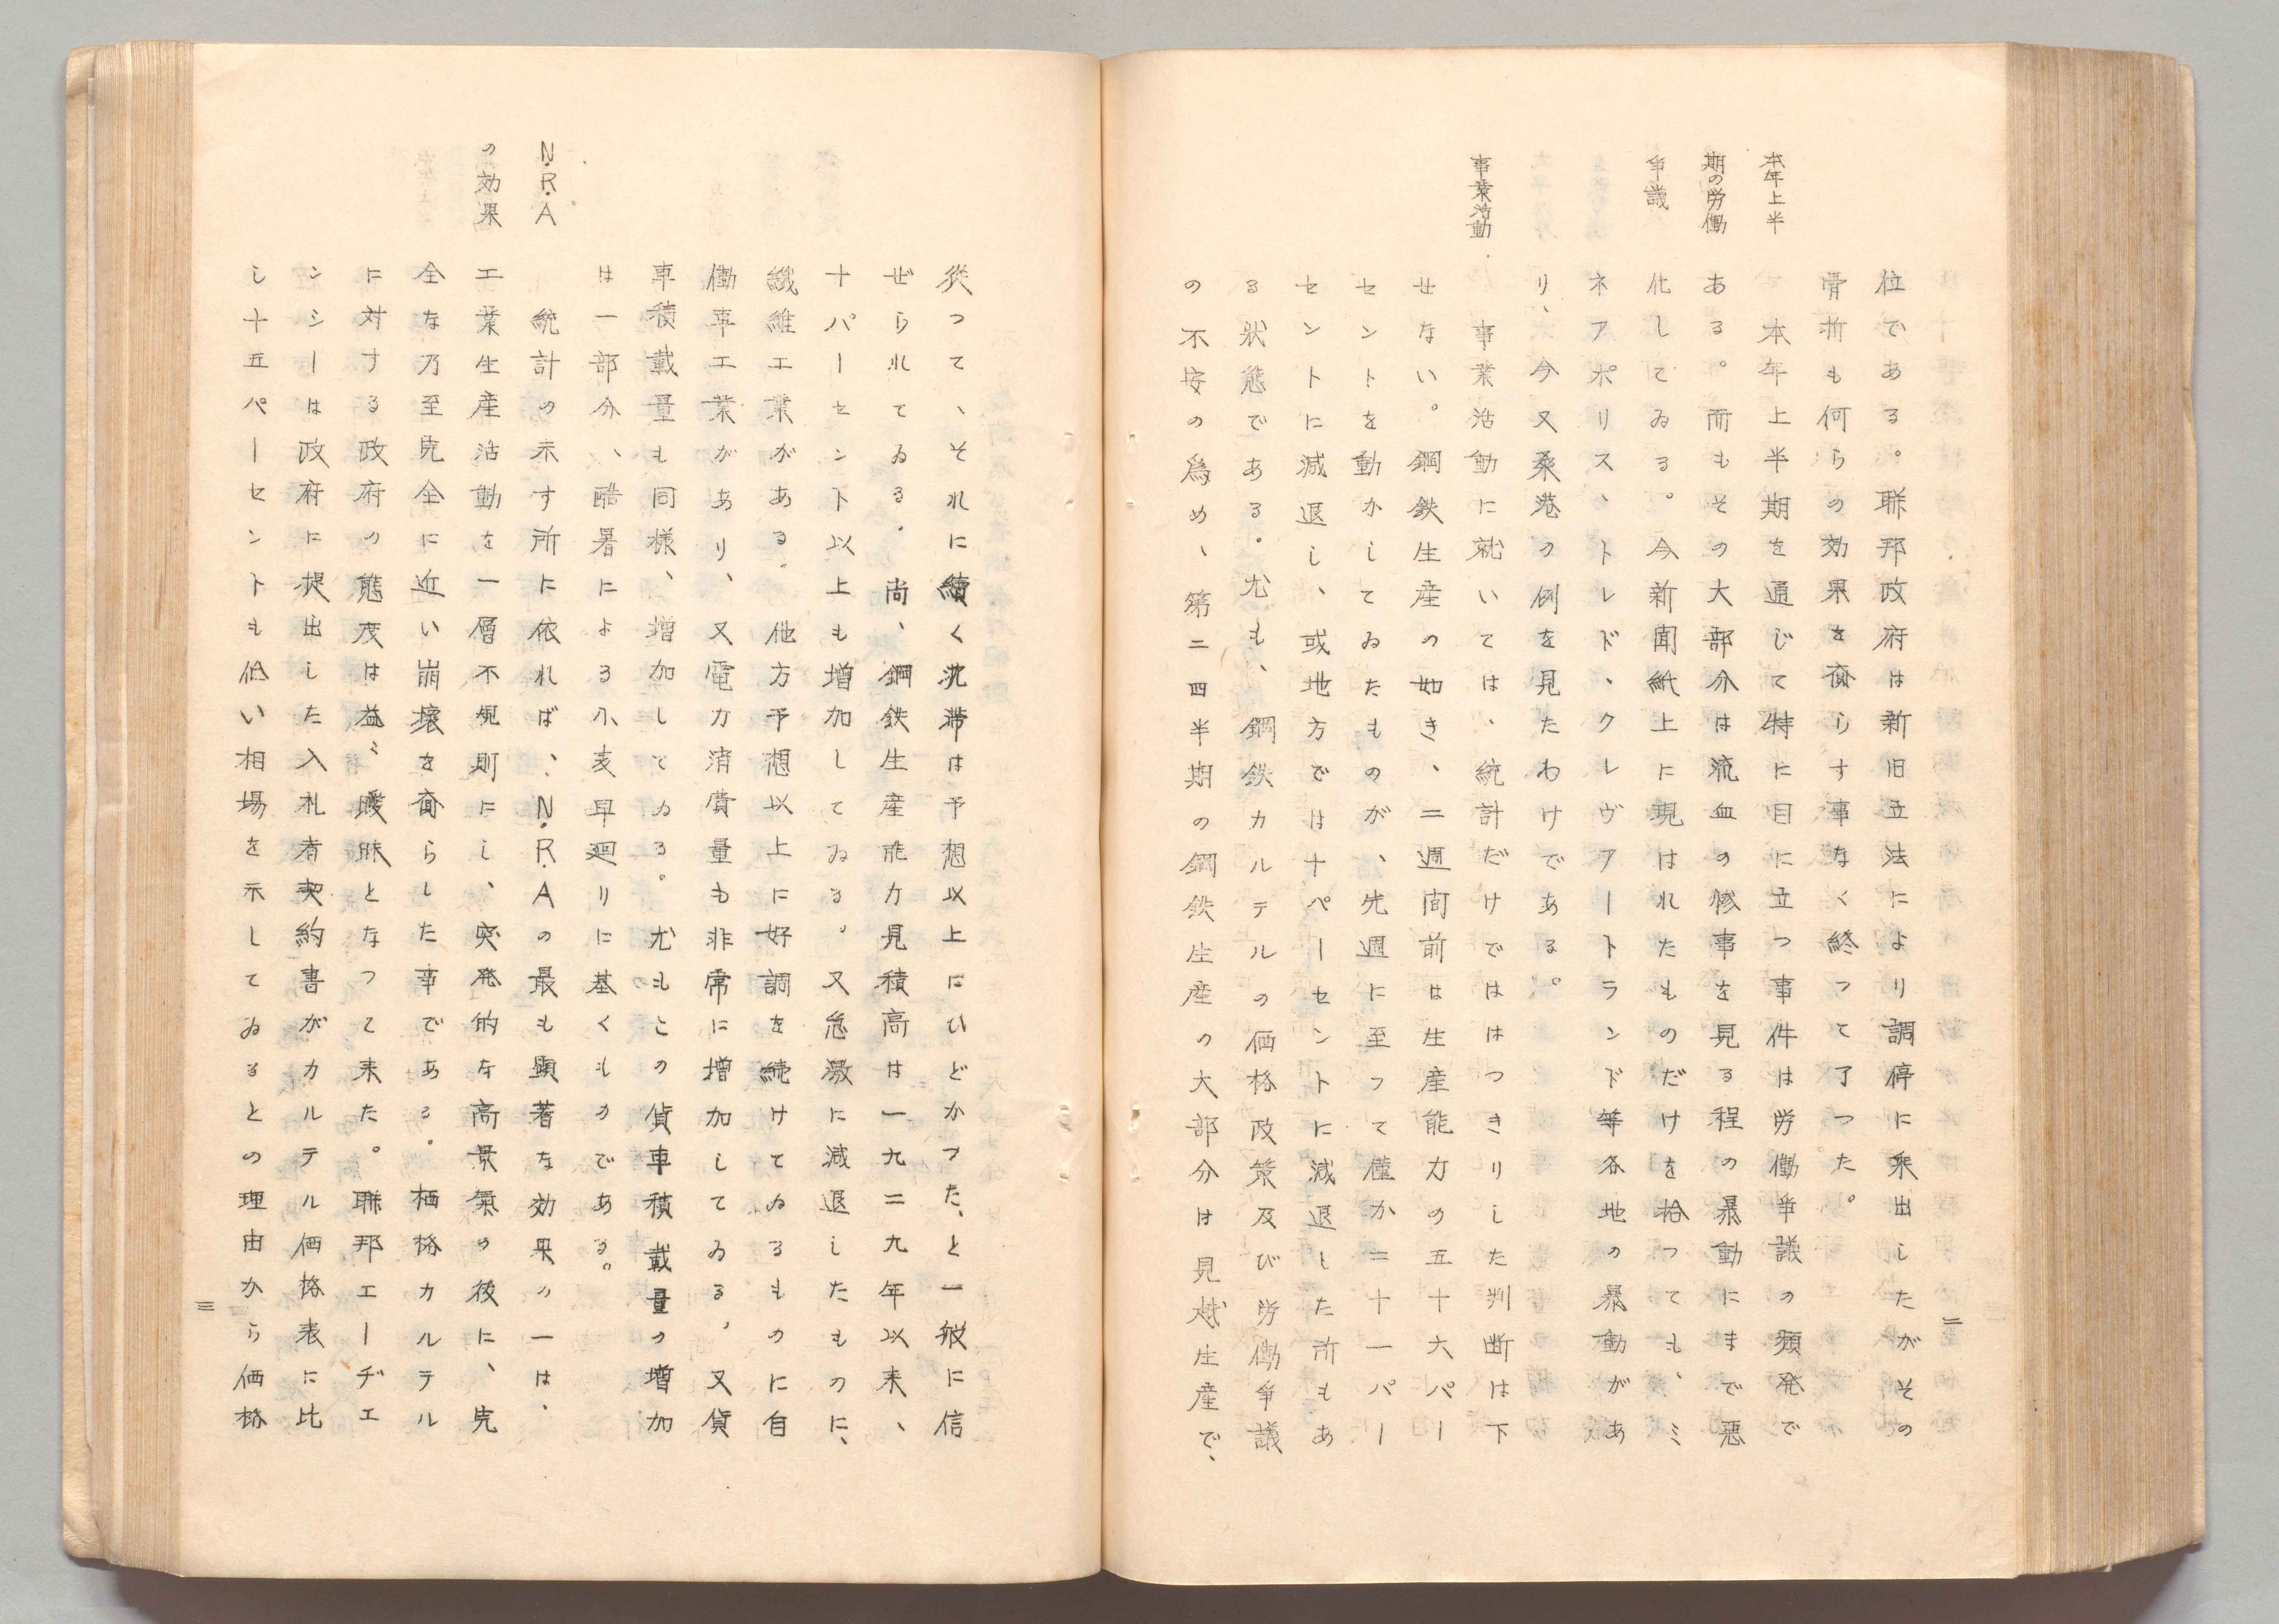 二
位である。聯邦政府は新旧立法により調停に乗出したがその
骨折も何らの効果を齎らす事なく終つて了つた。
本年上半
期の労働
争議
本年上半期を通じて特に目に立つ事件は労働争議の頻発で
ある。而もその大部分は流血の惨事を見る程の暴動にまで悪
化してゐる。今新聞紙上に現はれたものだけを拾つても、ミ
ネアポリス、トレド、クレヴアートランド等各地の暴動があ
り、今又桑港の例を見たわけである。
事業活動
事業活動に就いては、統計だけでははつきりした判断は下
せない。鋼鉄生産の如き、二週間前は生産能力の五十六パー
セントを動かしてゐたものが、先週に至つて僅か二十一パー
セントに減退し、或地方では十パーセントに減退した所もあ
る状態である。尤も、鋼鉄カルテルの価格政策及び労働争議
の不安の為め、第二四半期の鋼鉄生産の大部分は見越生産で、
従つて、それに續く沈滞は予想以上にひどかつた、と一般に信
ぜられてゐる。尚、鋼鉄生産能力見積高は一九二九年以来、
十パーセント以上も増加してゐる。又急激に減退したものに、
繊維工業がある。他方予想以上に好調を続けてゐるものに自
働車工業があり、又電力消費量も非常に増加してゐる。又貨
車積載量も同様、増加してゐる。尤もこの貨車積載量の増加
は一部分、酷暑による小麦早廻りに基くものである。
N.R.A
の効果
統計の示す所に依れば、N.R.Aの最も顕著な効果の一は、
工業生産活動を一層不規則にし、突発的な高景氣の後に、完
全な乃至完全に近い崩壊を齎らした事である。価格カルテル
に対する政府の態度は益〻曖昧となつて来た。聯邦エーヂエ
ンシーは政府に提出した入札者契約書がカルテル価格表に比
し十五パーセントも低い相場を示してゐるとの理由から価格
三